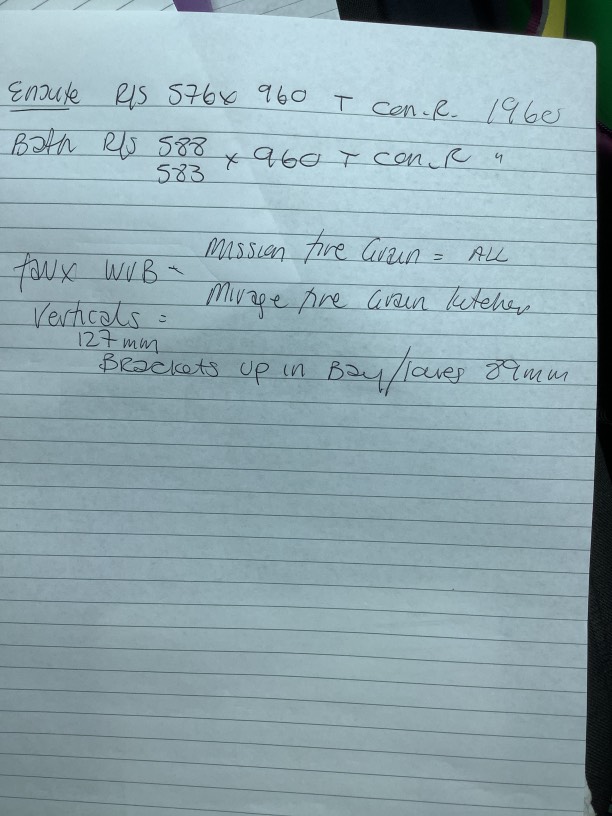 Ensute R/S 576 x 960 T con.R. 1960
Bath R/S 588 x 960 T con.R "
583
faux WVB - Mission fine Grain = ALL
Mirage fine Grain kitchen
Verticals =
127mm
Brackets up in Bay/ 89mm